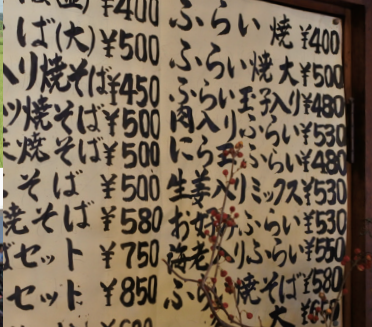 ば(並) ¥400
ば(大) ¥500
入り焼そば ¥450
ツ焼そば ¥500
焼そば ¥500
そば ¥500
焼そば ¥580
ばセット ¥750
セット ¥850
ふらい焼 ¥400
ふらい焼大 ¥500
ふらい玉子入り ¥480
肉入りふらい ¥530
にら玉ふらい ¥480
生姜入りミックス ¥530
おせわりふらい ¥530
海老入りふらい ¥550
ふらい焼そば ¥580
大 ¥650